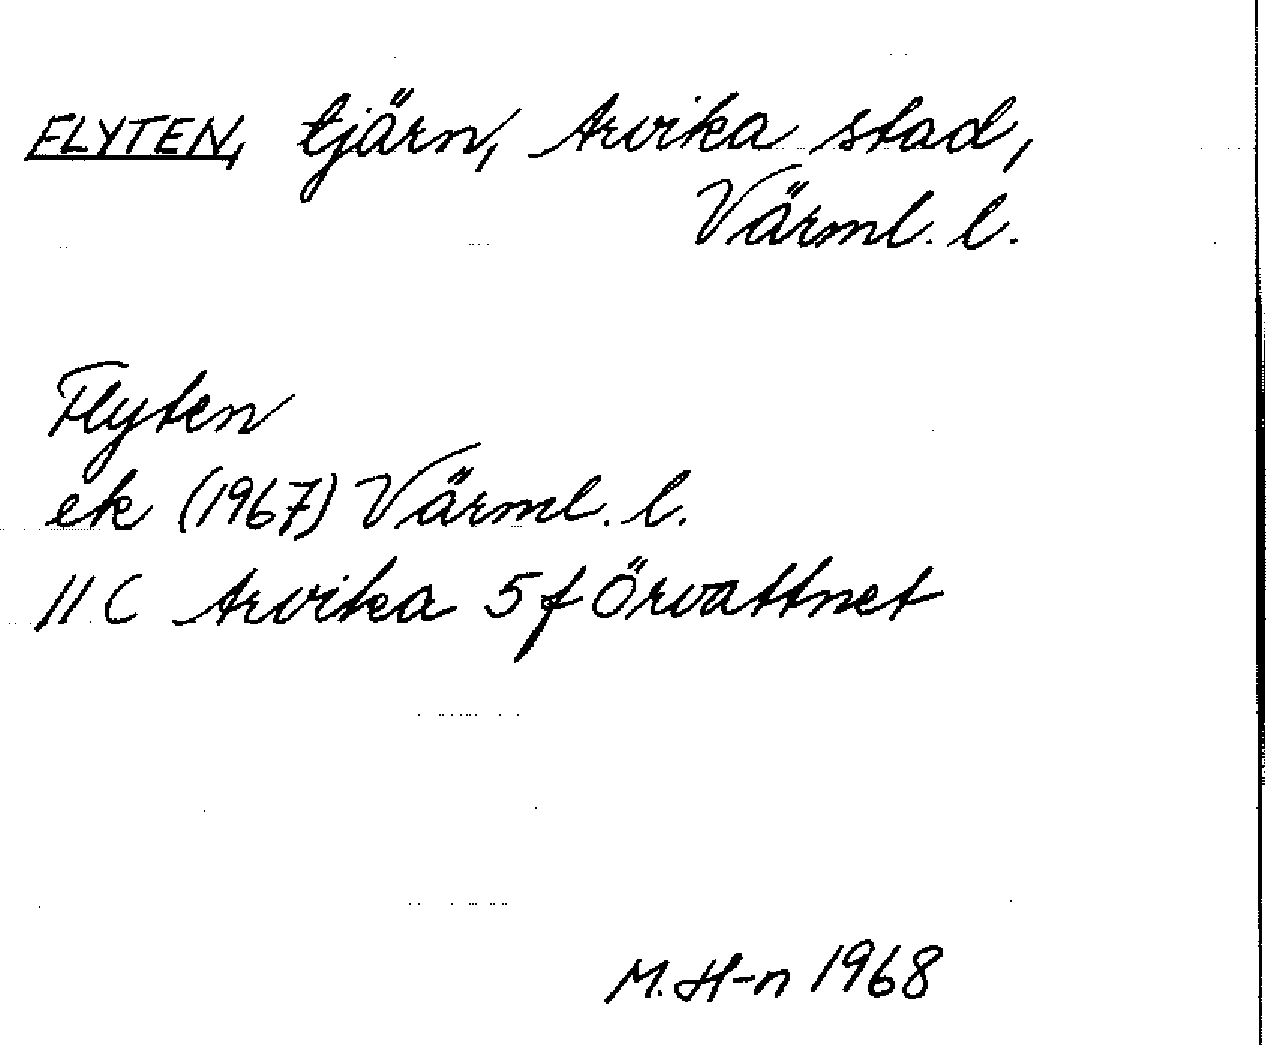 FLYTEN, tjärn, Arvika stad,
Värml. l.
Flyten
ek (1967) Värml. l.
11 C Arvika 5 f Örvattnet
M. H-n 1968